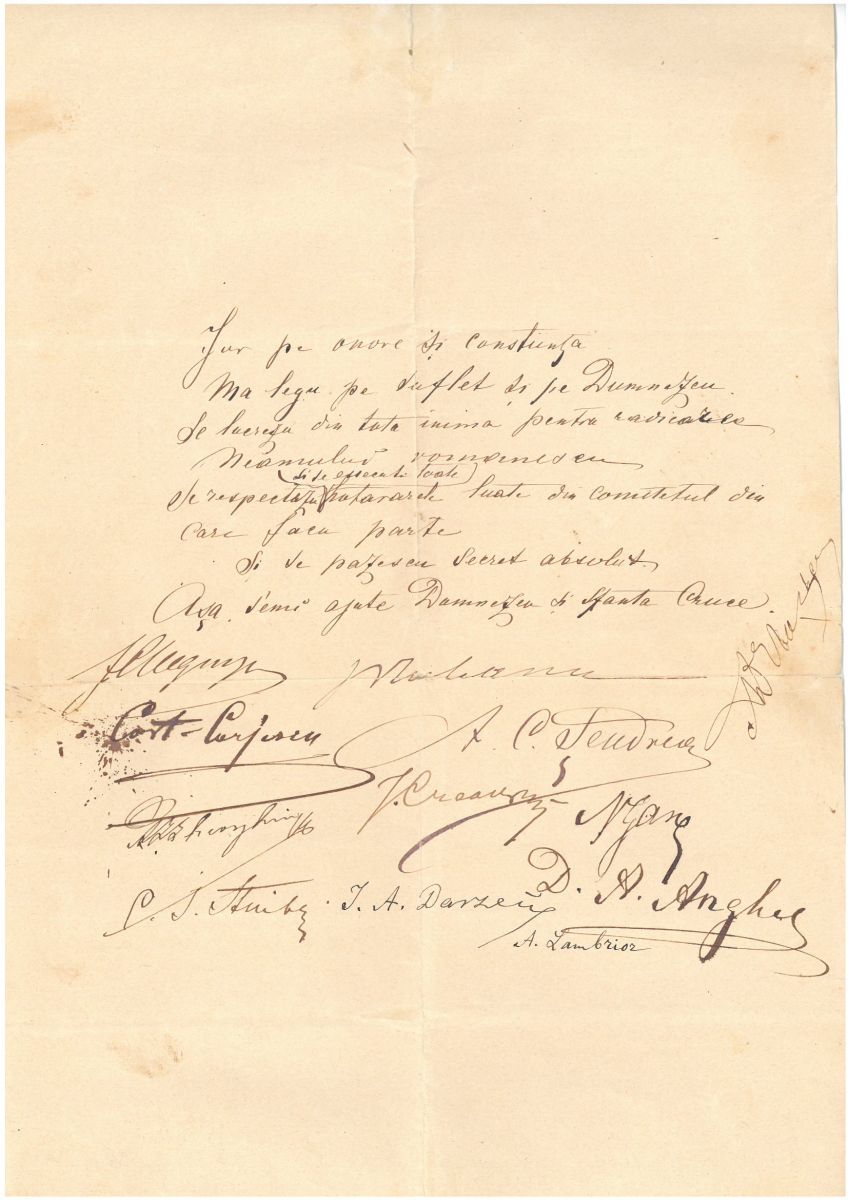 Jur pe onore și constiința
Ma legu pe suflet și pe Dumnezeu
Se lucrezu din tota inima pentru radicarea
Neamului romanescu
și se essecut toate
Se respectezu hotararele luate din comitetul din
care facu parte
Și se pazescu secret absolut
Așa, s'emi ajute Dumnezeu și sfanta Cruce.
Const-Corjescu
A. C. Tendrea
N Gane
D. A. Anghel
I. A. Darzeu
A. Lambrior